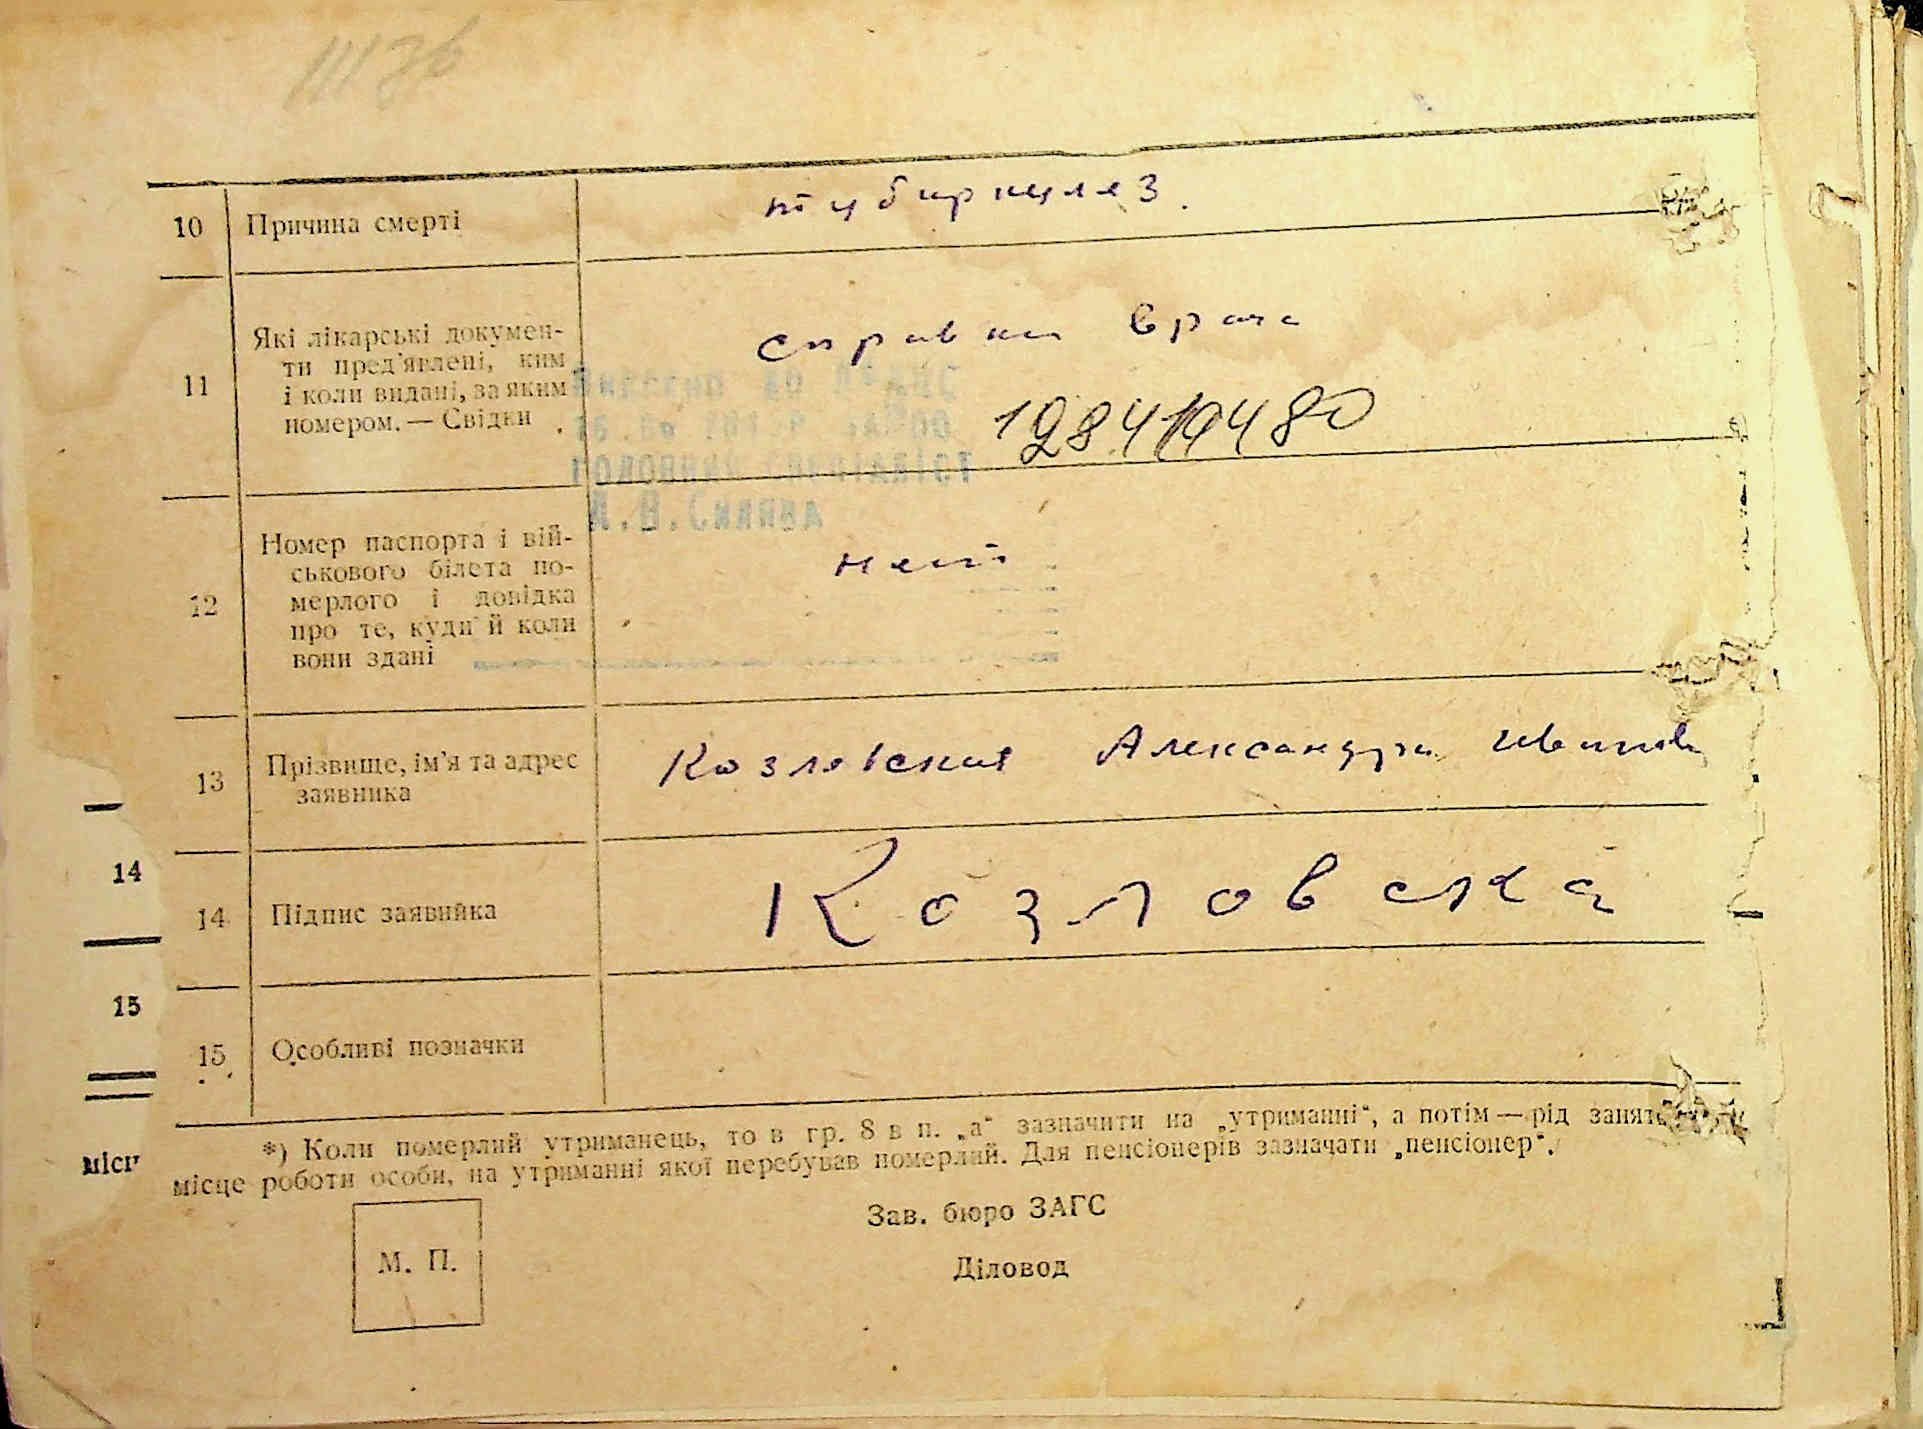 10 Причина смерті
тубиркулез.
11 Які лікарські докумен-
ти пред'явлені, ким
і коли видані, за яким
номером. — Свідки
справка врача
головний спеціаліст
12 Номер паспорта і вій-
ськового білета по-
мерлого і довідка
про те, куди й коли
вони здані
нет
13 Прізвище, ім'я та адрес
заявника
Козловская Александра
14 Підпис заявника
Козловска
15 Особливі позначки
14
15
місц
*) Коли померлий утриманець, то в гр. 8 в п. „а“ зазначити на „утриманні“, а потім — рід занят
місце роботи особи, на утриманні якої перебував померлий. Для пенсіонерів зазначати „пенсіонер“.
Зав. бюро ЗАГС
М. П.
Діловод